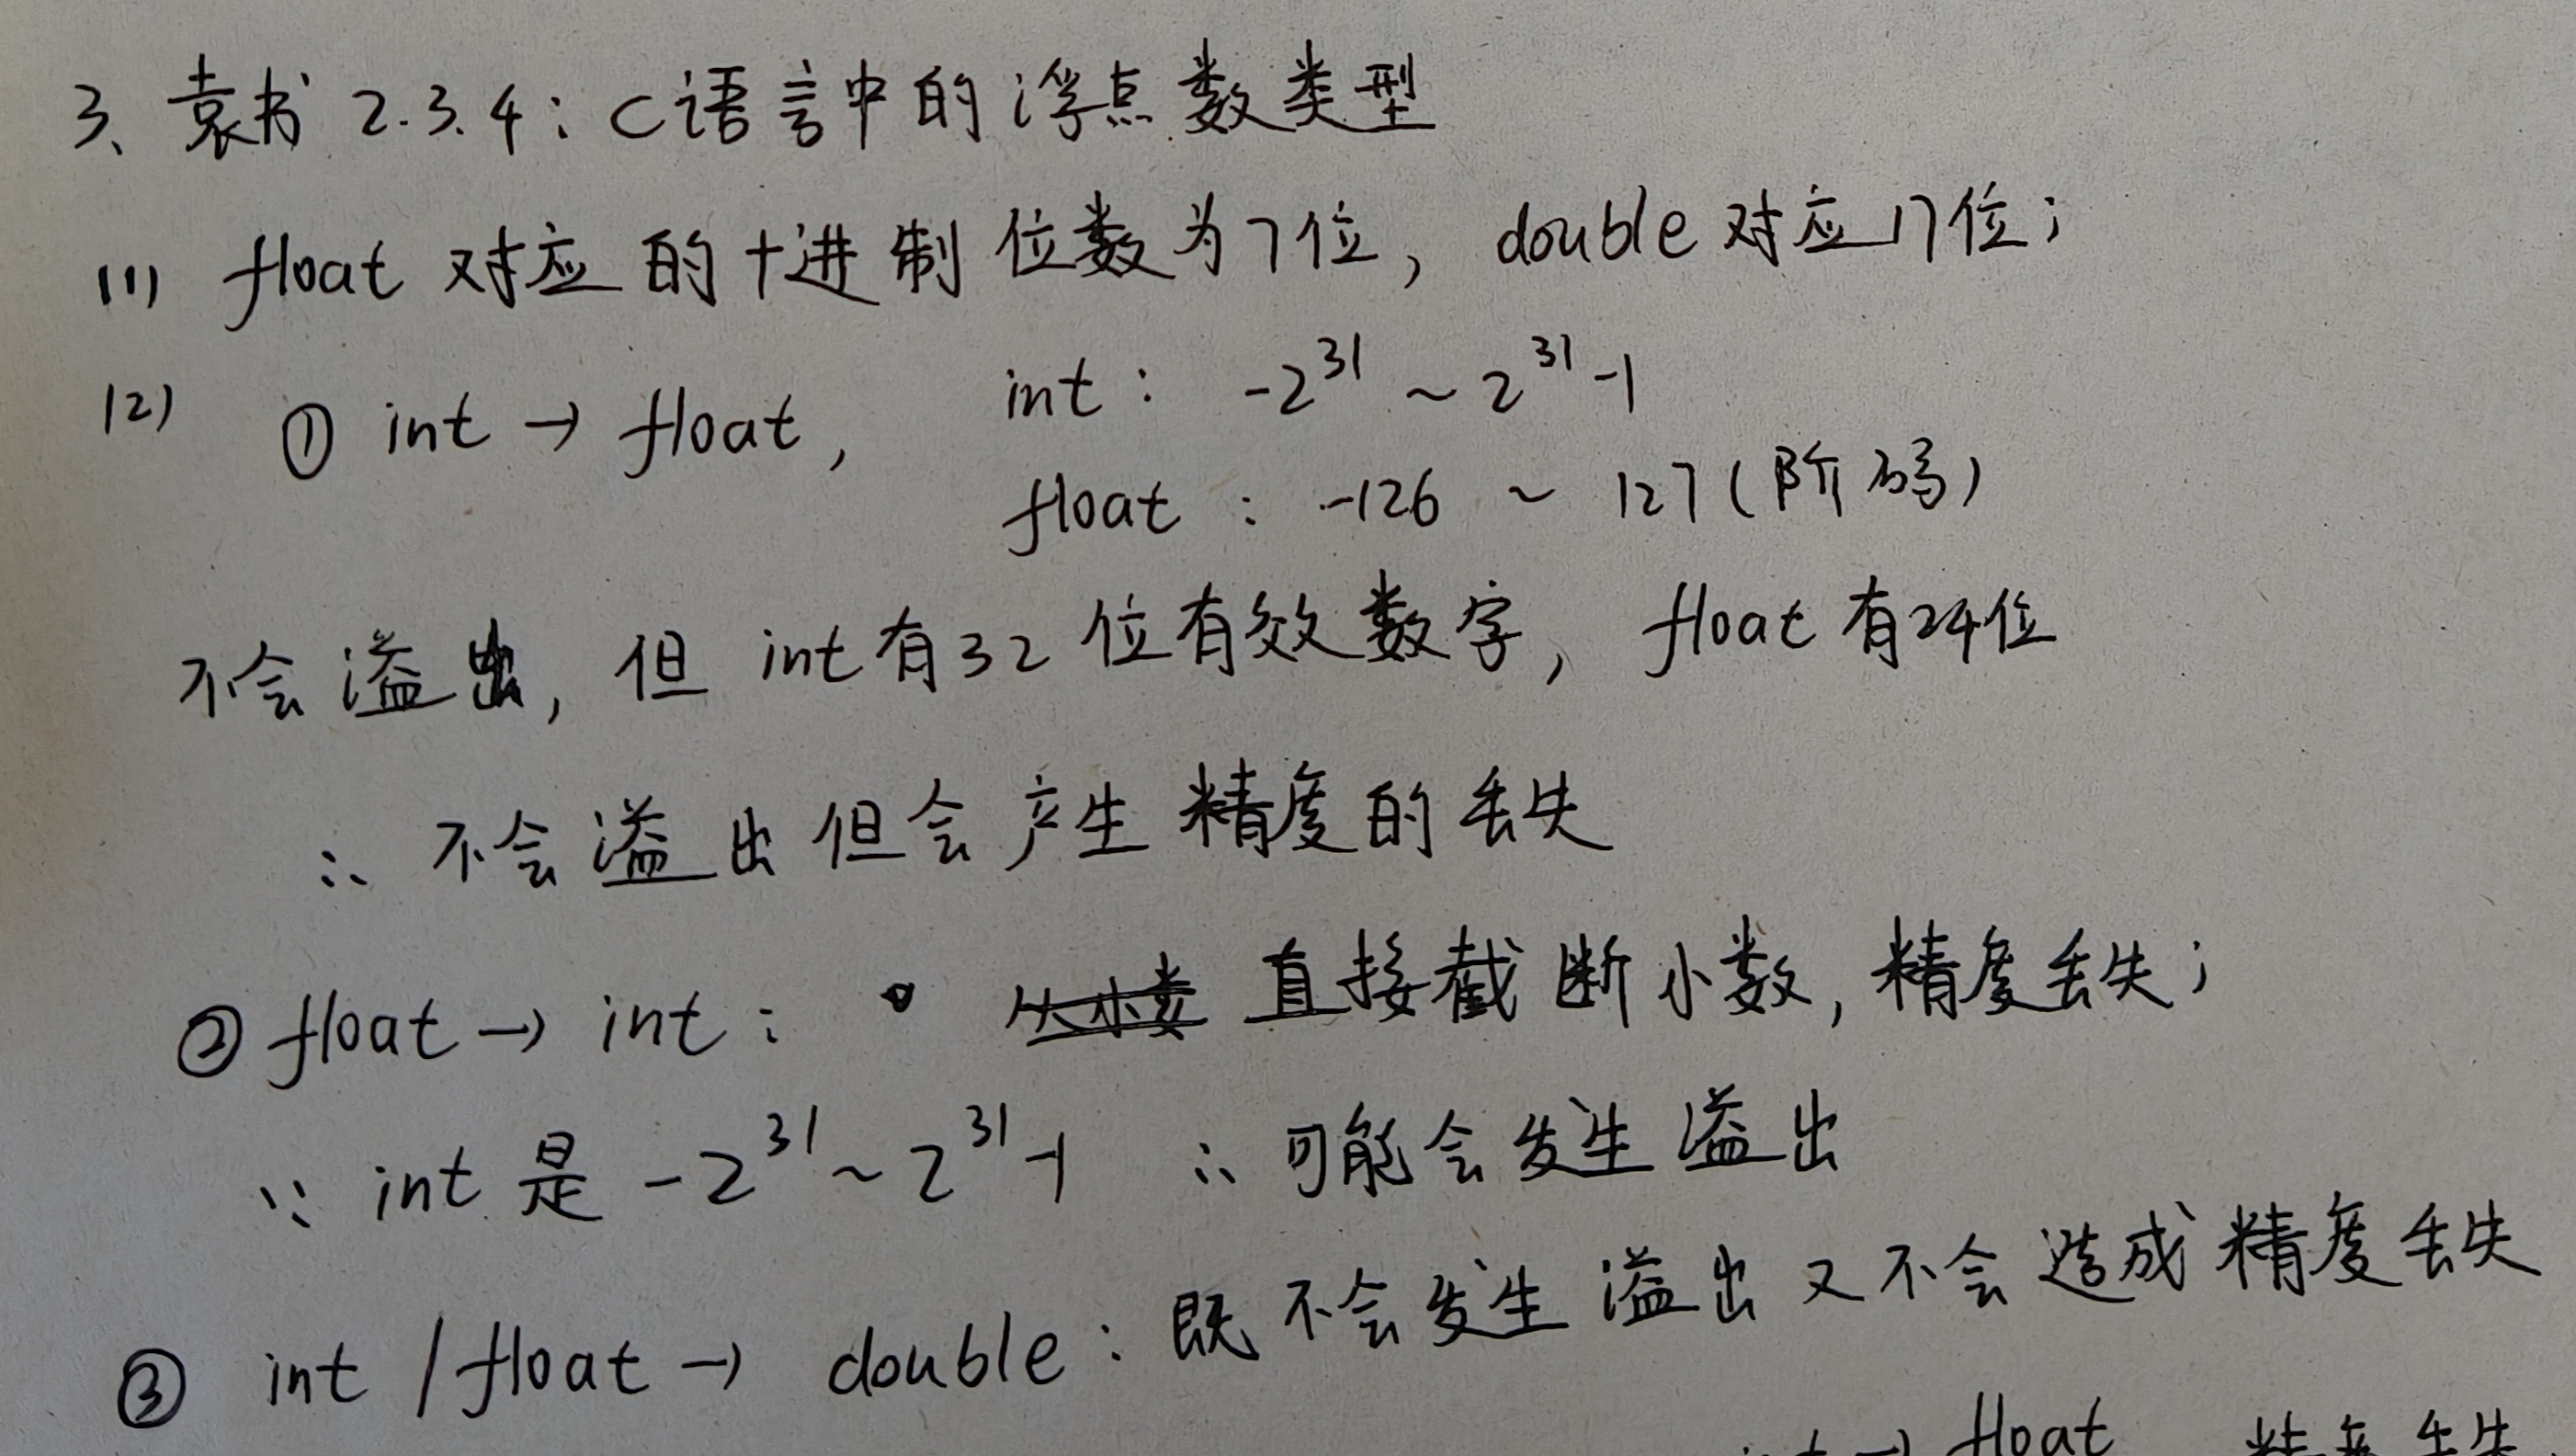 3、袁书 2.3.4：C语言中的浮点数类型
(1) float 对应的十进制位数为7位，double对应17位；
(2) ① int → float， int： -2^31 ~ 2^31-1
float： -126 ~ 127(阶码)
不会溢出，但 int有32位有效数字，float有24位
∴ 不会溢出但会产生精度的丢失
② float → int： 直接截断小数，精度丢失；
∵ int 是 -2^31 ~ 2^31-1 ∴ 可能会发生溢出
③ int / float → double：既不会发生溢出又不会造成精度丢失
float